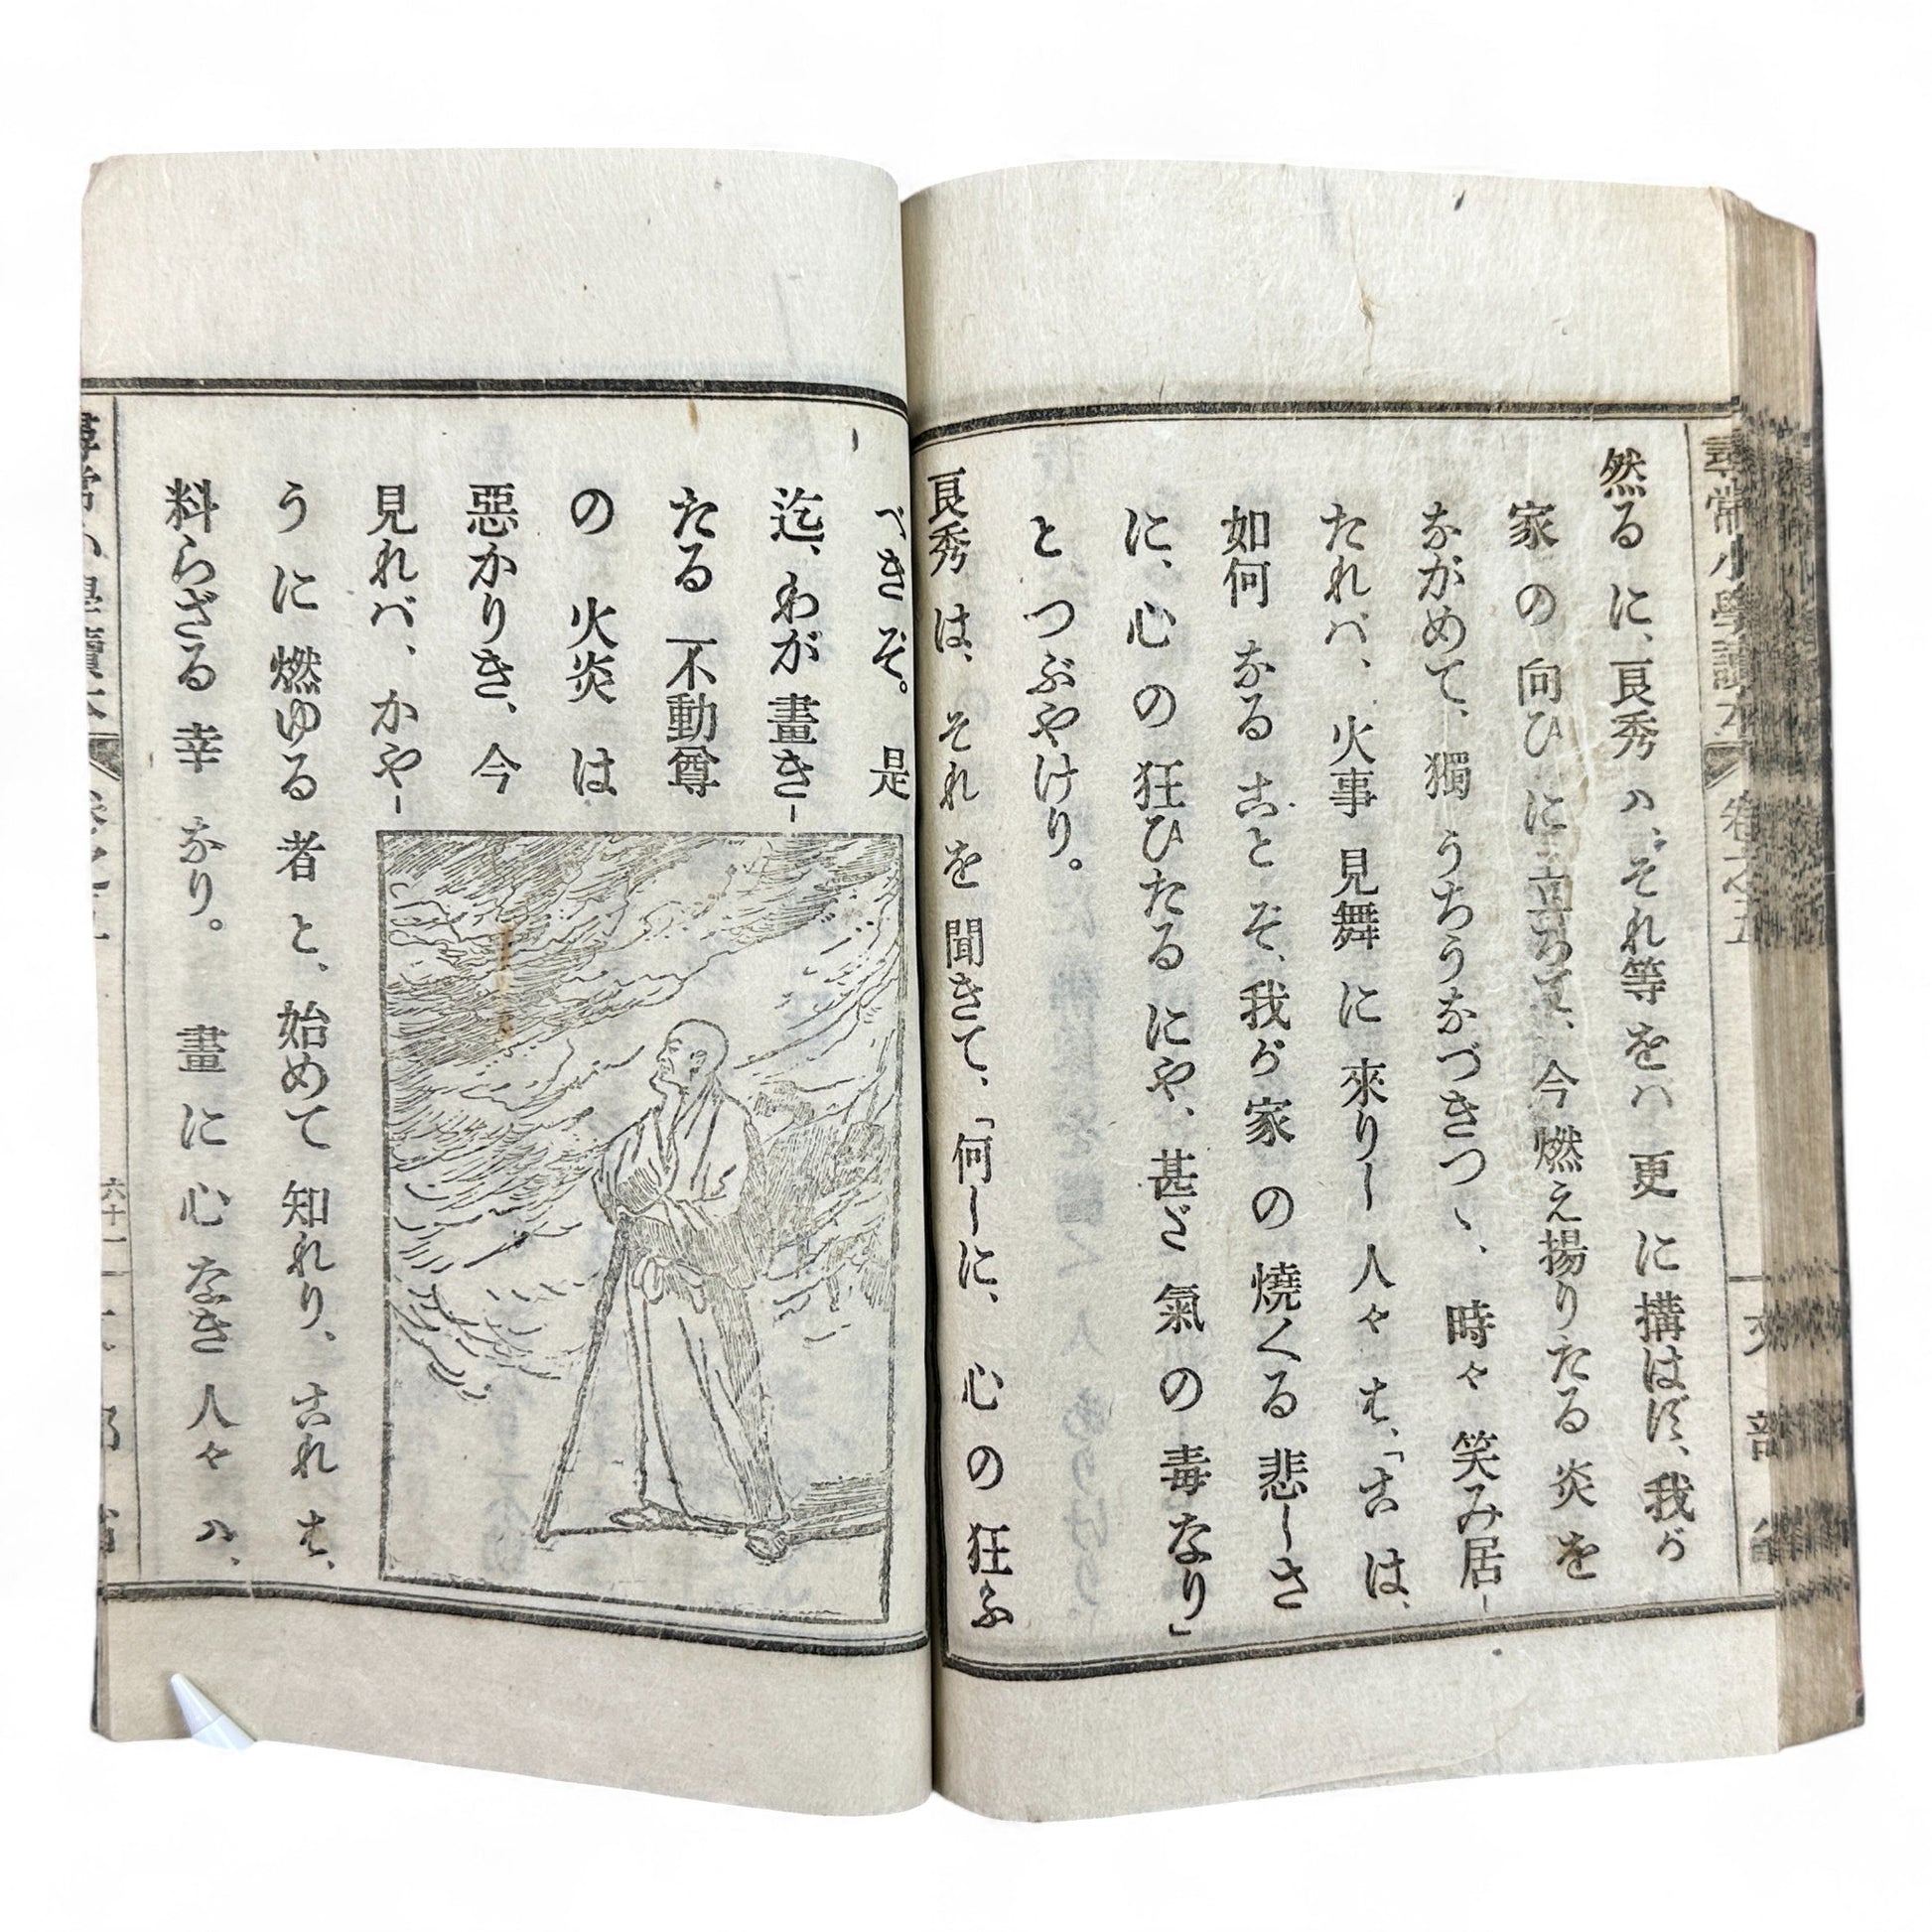 尋常小學讀本 卷之五 文部省
然る に、良秀 ハ、それ等 をバ 更 に 構はず、我が
家 の 向ひ に 立ちて、今 燃え揚りたる 炎 を
ながめて、獨 うちうなづきつゝ、時々 笑み居し
たれバ、火事 見舞 に 來りし 人々 も、「こ は、
如何 なる こと ぞ、我が 家 の 燒くる 悲しさ
に、心 の 狂ひたる にや、甚だ 氣 の 毒なり」
と つぶやけり。
良秀 は、それ を 聞きて、「何しに、心 の 狂ふ
べき ぞ。是
迄、わが 畫きし
たる 不動尊
の 火炎 は
惡かりき、今
見れバ、かやし
うに 燃ゆる 者 と、始めて 知れり、これ も、
料らざる 幸 なり。畫 に 心 なき 人々 ハ、